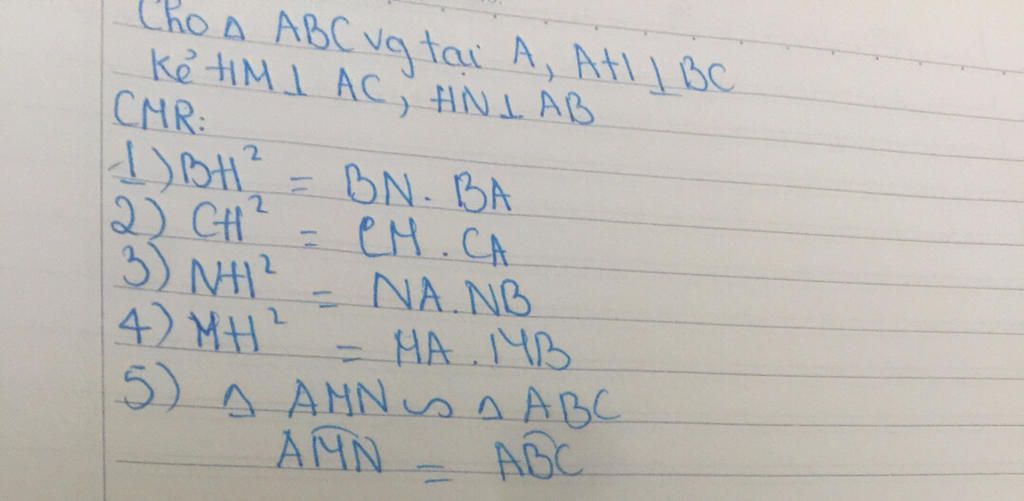 Cho Δ ABC vg tại A, AH ⊥ BC
Kẻ HM ⊥ AC, HN ⊥ AB
CMR:
1) BH² = BN. BA
2) CH² = CM . CA
3) NH² = NA.NB
4) MH² = MA . MB
5) Δ AMN ∽ Δ ABC
AM̂N = AB̂C